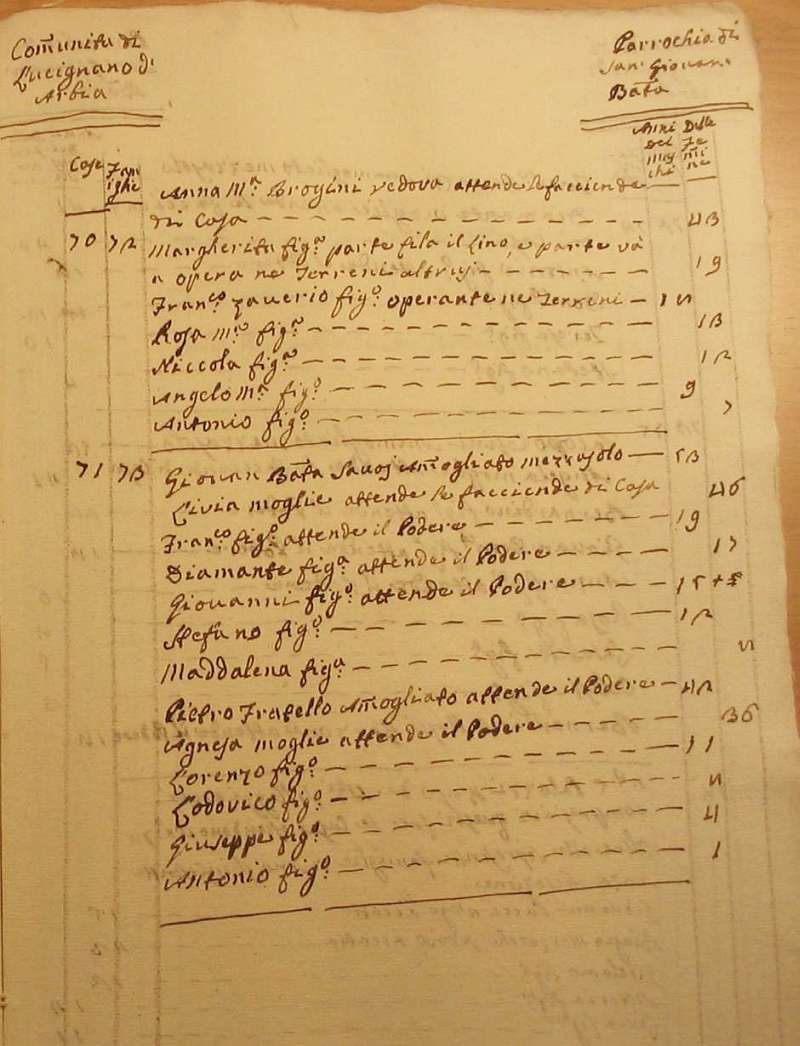 Com̃unita di
Lucignano d'
Arbia
Parrochia di
San Giovan
Bat̃a
Case
Fami
glie
Anni
dei
mas
chi
Delle
Fe
mi
ne
Anna M.ª Brogini vedova attende le facciende
di Casa 43
70 72 Margherita fig.ª parte fila il lino, e parte và
a opera ne Terreni altrui 19
Fran.co Zaverio fig.º operante ne Terreni
Rosa M.ª fig.ª 13
Niccola fig.ª 12
Angelo M.ª fig.º 9
Antonio fig.º 7
71 73 Giovan Bat̃a Savoj Am̃ogliato mezzajolo 53
Livia moglie attende le facciende di Casa 46
Fran.co fig.º attende il Podere 19
Diamante fig.ª attende il Podere 17
Giovanni fig.º attende il Podere 15
Stefano fig.º 12
Maddalena fig.ª
Pietro Fratello Am̃ogliato attende il Podere 42
Agnesa moglie attende il Podere 36
Lorenzo fig.º 11
Lodovico fig.º
Giuseppe fig.º 4
Antonio fig.º 1